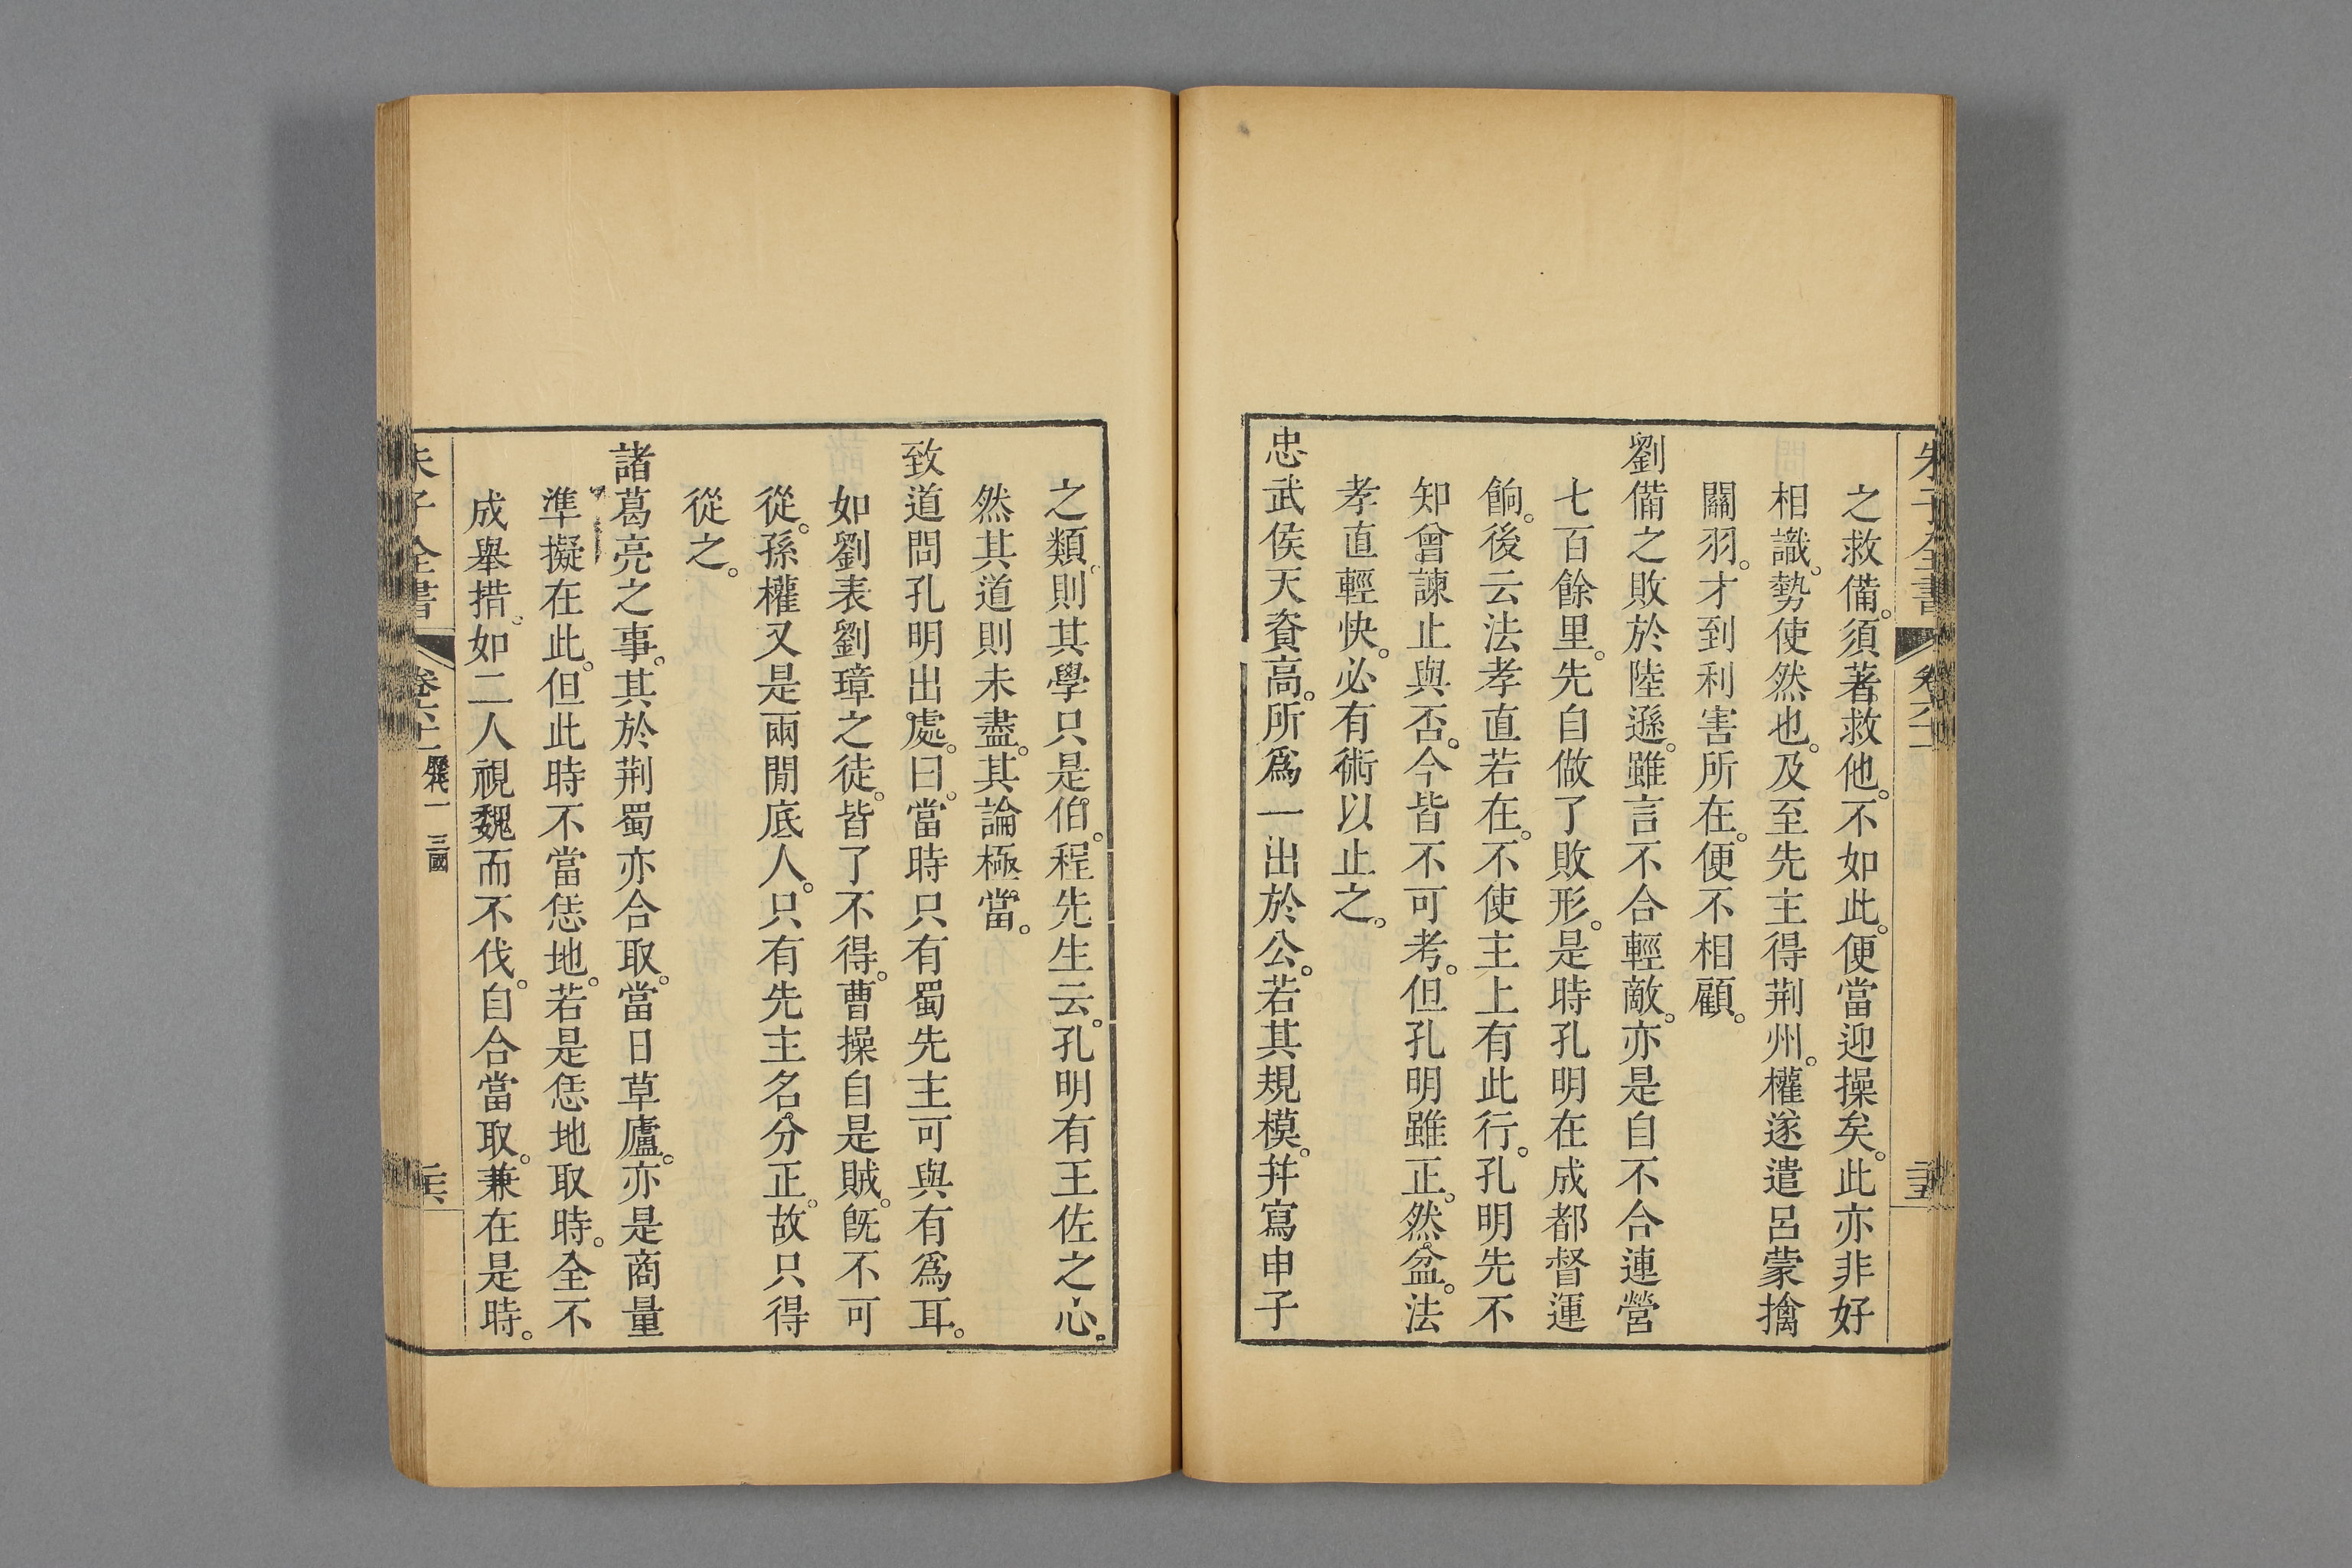 朱子全書 卷六十一 二十五
之救備。須著救他。不如此。便當迎操矣。此亦非好
相識。勢使然也。及至先主得荆州。權遂遣呂蒙擒
關羽。才到利害所在。便不相顧。
劉備之敗於陸遜。雖言不合輕敵。亦是自不合連營
七百餘里。先自做了敗形。是時孔明在成都督運
餉。後云法孝直若在。不使主上有此行。孔明先不
知曾諫止與否。今皆不可考。但孔明雖正。然盆。法
孝直輕快。必有術以止之。
忠武侯天資高。所爲一出於公。若其規模。并寫申子
之類。則其學只是伯。程先生云。孔明有王佐之心。
然其道則未盡。其論極當。
致道問孔明出處。曰。當時只有蜀先主可與有爲耳。
如劉表劉璋之徒。皆了不得。曹操自是賊。旣不可
從。孫權又是兩閒底人。只有先主名分正。故只得
從之。
諸葛亮之事。其於荆蜀亦合取。當日草廬。亦是商量
準擬在此。但此時不當恁地。若是恁地取時。全不
成舉措。如二人視魏而不伐。自合當取。兼在是時。
朱子全書 卷六十一 歷代一 三國 二十六